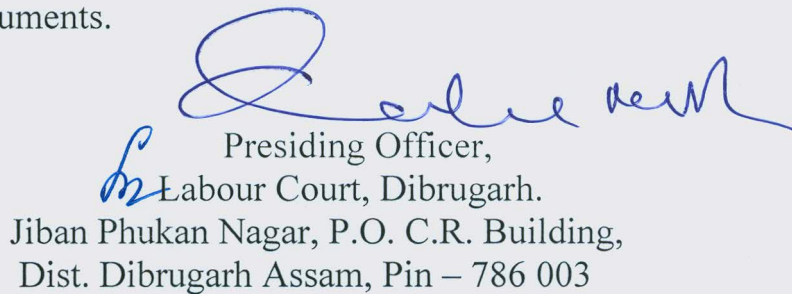 uments.
Presiding Officer,
Labour Court, Dibrugarh.
Jiban Phukan Nagar, P.O. C.R. Building,
Dist. Dibrugarh Assam, Pin – 786 003